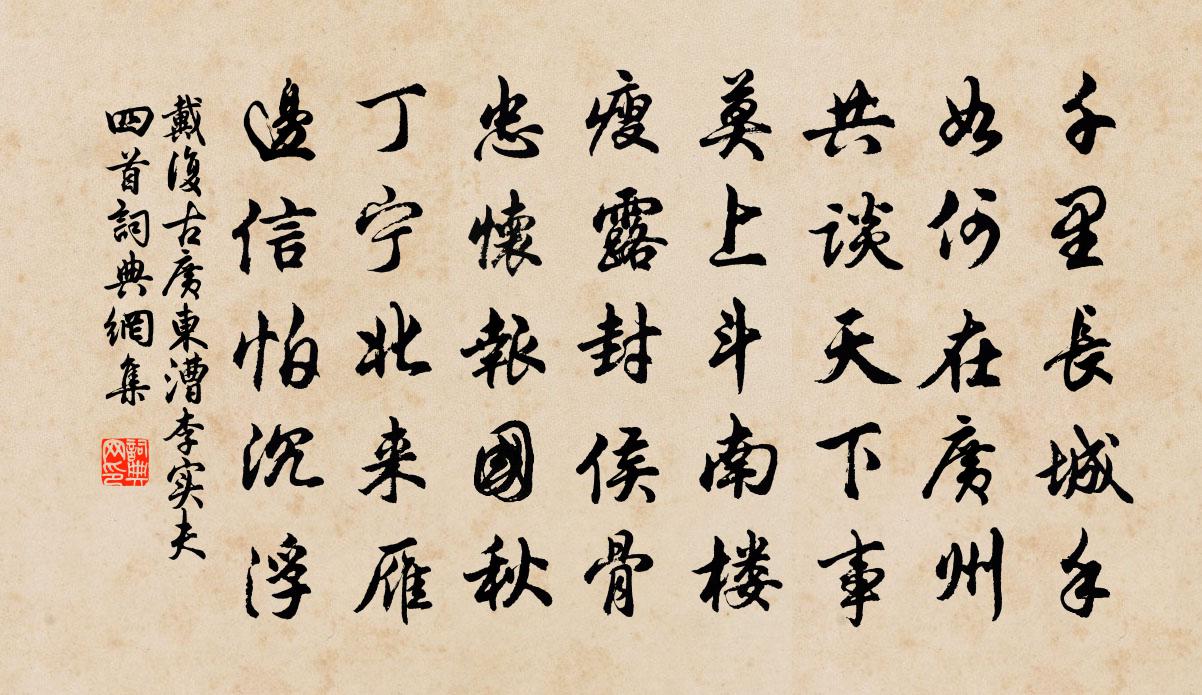 千里長城手
如何在廣州
共談天下事
莫上斗南楼
瘦露封侯骨
忠懷報國秋
丁宁北来雁
邊信怕沉浮
戴復古廣東漕李实夫
四首詞典網集
詞典
网印